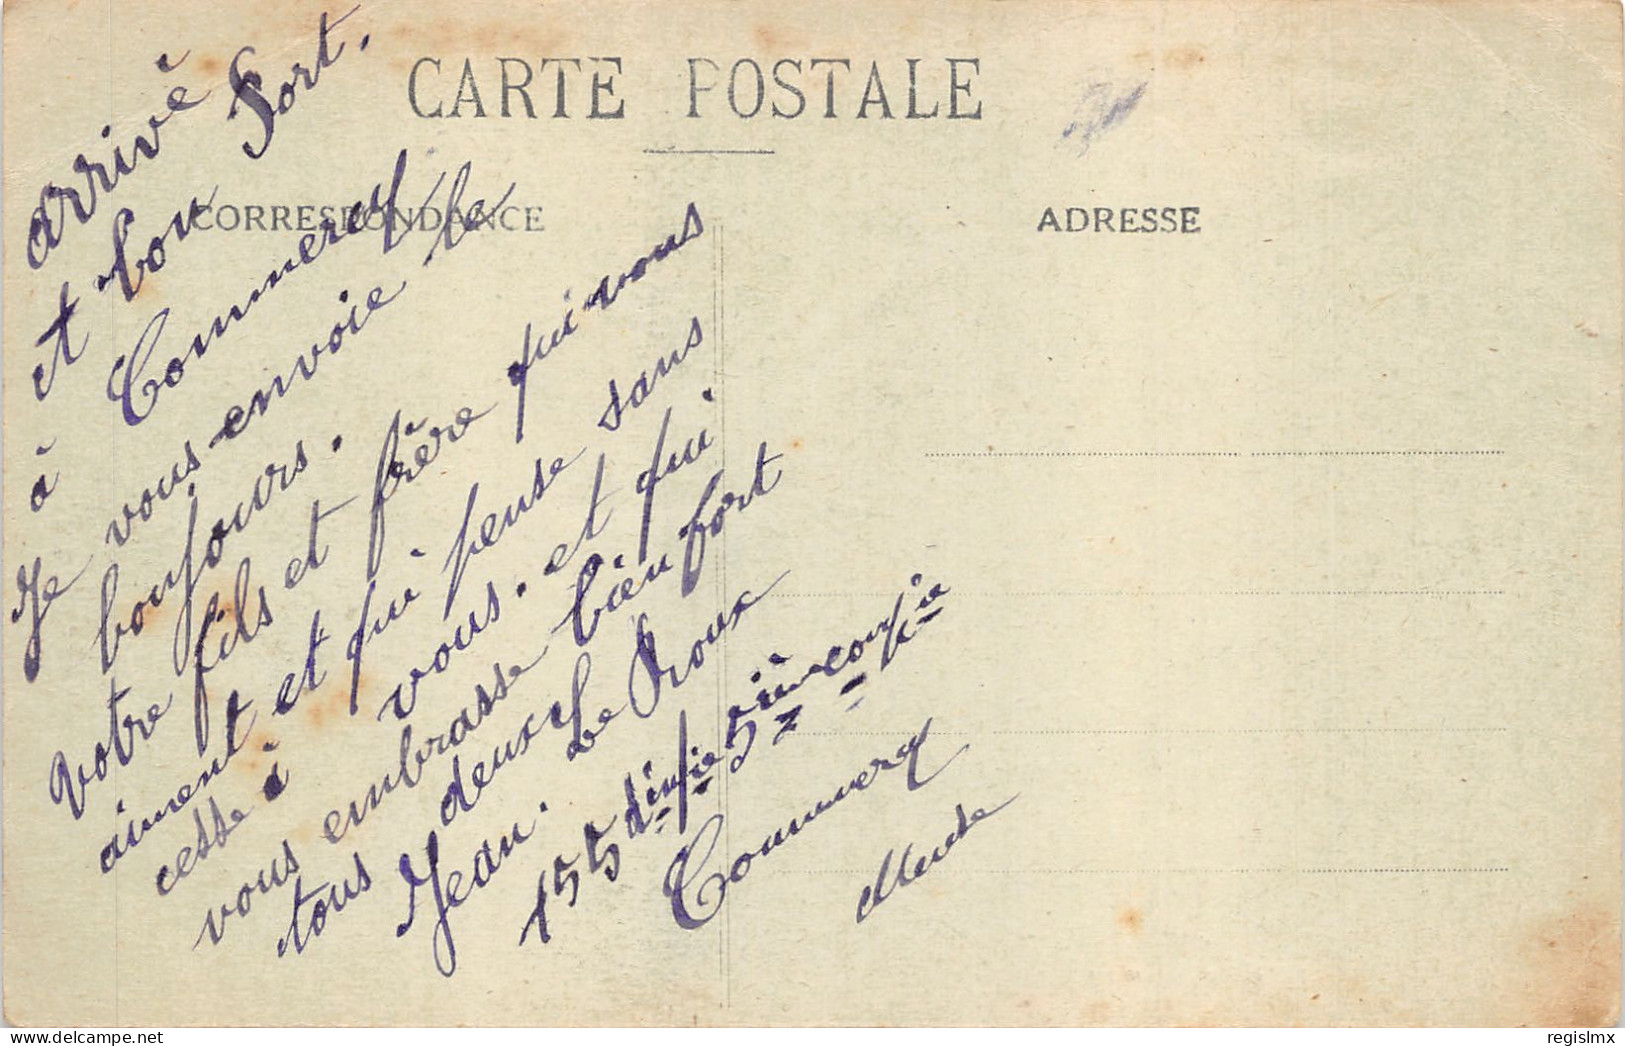 CARTE POSTALE
CORRESPONDANCE
ADRESSE
arrivé
et bon Port.
à Commercy
Je vous envoie le
bonjours.
votre fils et frère qui vous
aiment et qui pense sans
cesse à vous. et qui
vous embrasse bien fort
tous deux
Jean. Le Roux
155 d'infie 5ième compie
Commercy
Meuse
regislmx